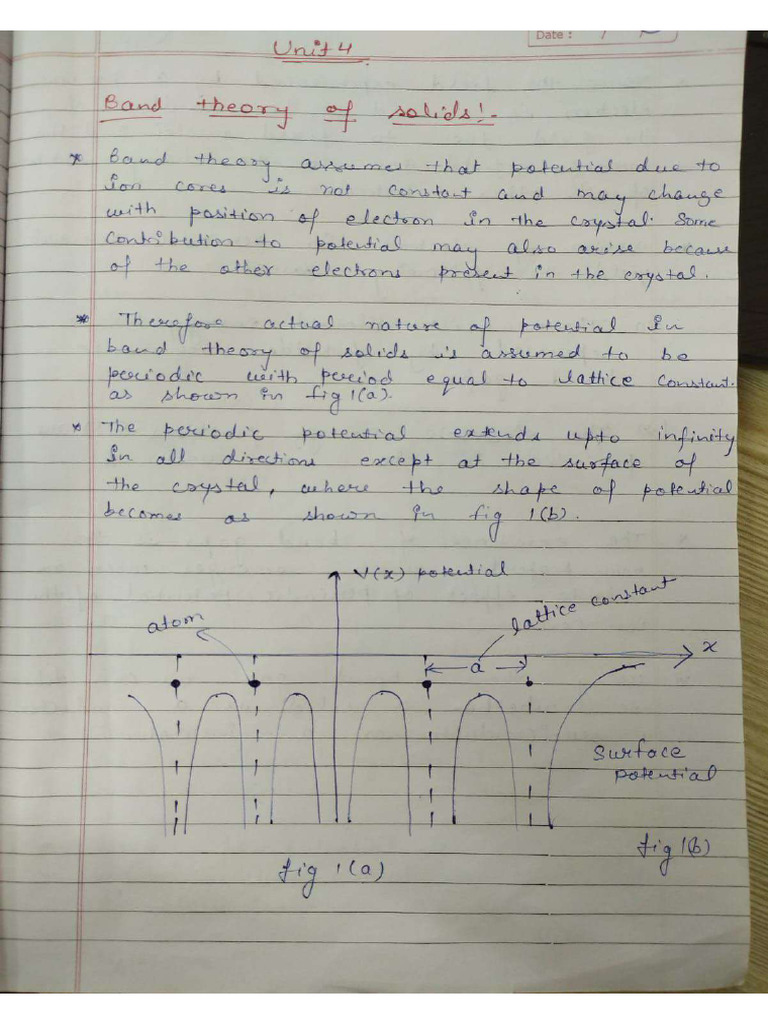 Date :
Unit 4
Band theory of solids!-
* Band theory assumes that potential due to
ion cores is not constant and may change
with position of electron in the crystal. Some
contribution to potential may also arise because
of the other electrons present in the crystal.
* Therefore actual nature of potential in
band theory of solids is assumed to be
periodic with period equal to lattice constant.
as shown in fig 1(a).
* The periodic potential extends upto infinity
in all directions except at the surface of
the crystal, where the shape of potential
becomes as shown in fig 1(b).
V(x) potential
lattice constant
atom
x
a
Surface
potential
fig 1(b)
fig 1(a)